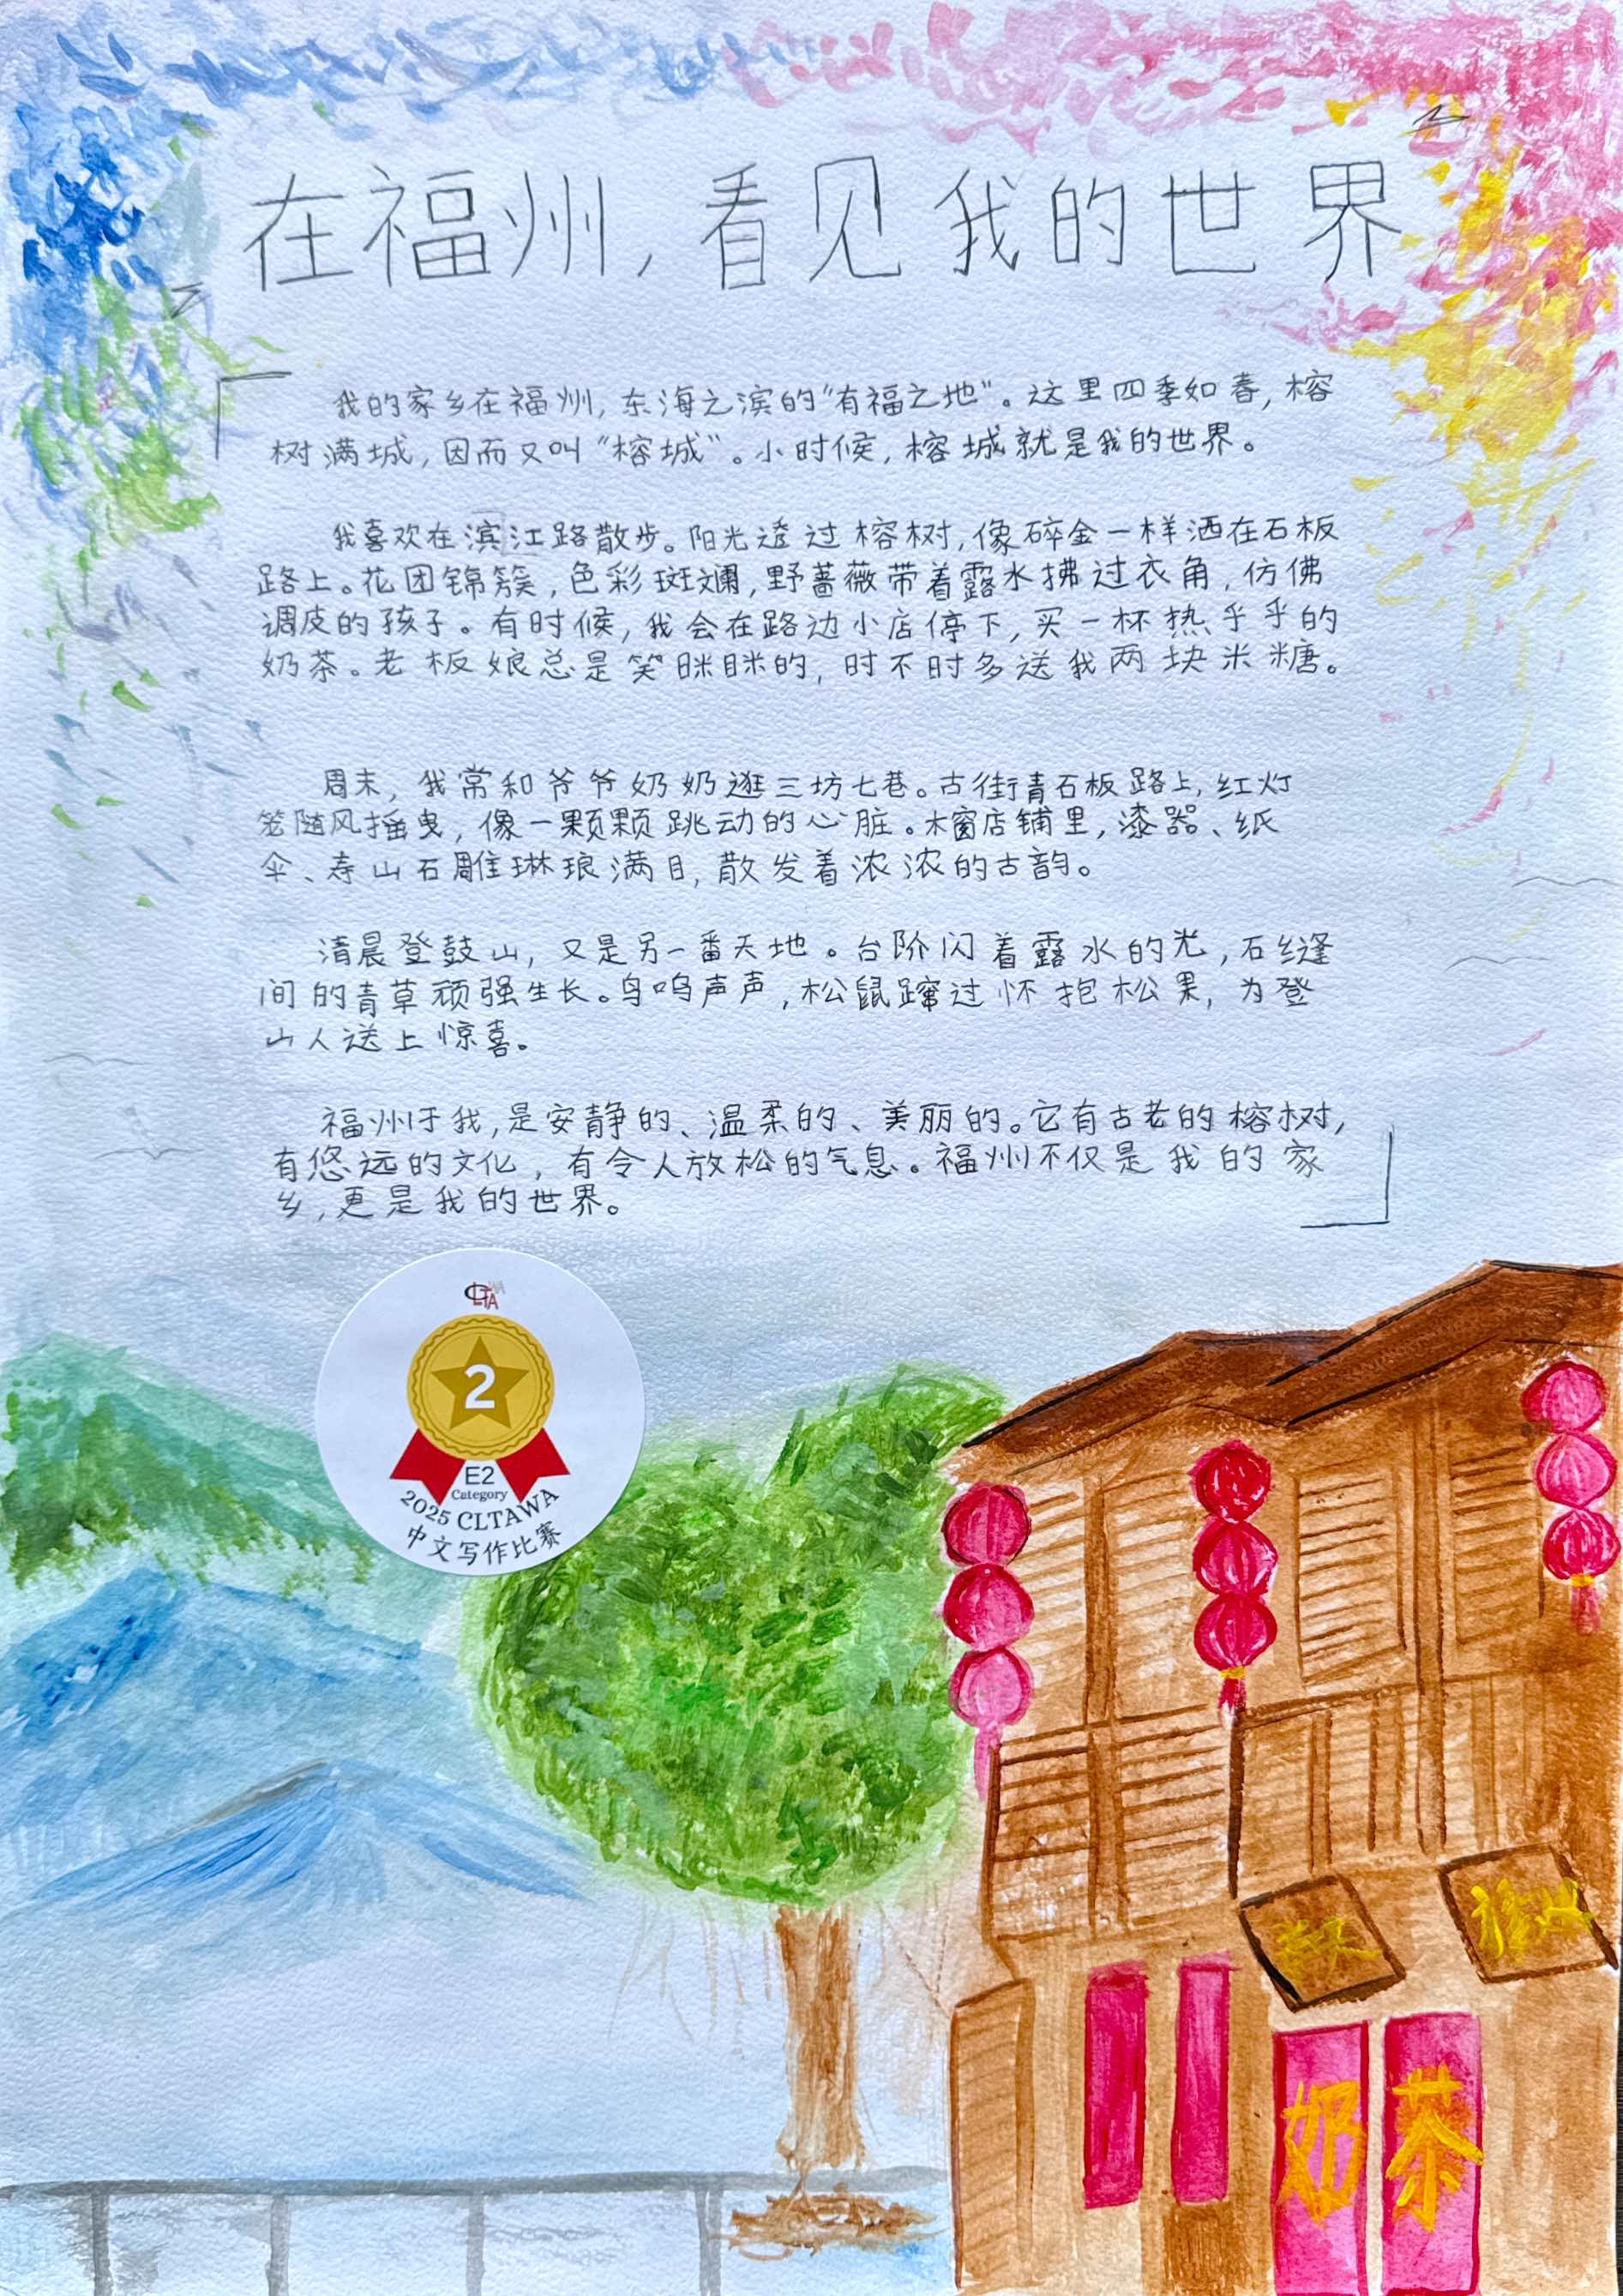 在福州，看见我的世界
我的家乡在福州，东海之滨的“有福之地”。这里四季如春，榕
树满城，因而又叫“榕城”。小时候，榕城就是我的世界。
我喜欢在滨江路散步。阳光透过榕树，像碎金一样洒在石板
路上。花团锦簇，色彩斑斓，野蔷薇带着露水拂过衣角，仿佛
调皮的孩子。有时候，我会在路边小店停下，买一杯热乎乎的
奶茶。老板娘总是笑眯眯的，时不时多送我两块米糖。
周末，我常和爷爷奶奶逛三坊七巷。古街青石板路上，红灯
笼随风摇曳，像一颗颗跳动的心脏。木窗店铺里，漆器、纸
伞、寿山石雕琳琅满目，散发着浓浓的古韵。
清晨登鼓山，又是另一番天地。台阶闪着露水的光，石缝
间的青草顽强生长。鸟鸣声声，松鼠蹿过怀抱松果，为登
山人送上惊喜。
福州于我，是安静的、温柔的、美丽的。它有古老的榕树，
有悠远的文化，有令人放松的气息。福州不仅是我的家
乡，更是我的世界。
CLTAWA
2
E2
Category
2025 CLTAWA
中文写作比赛
奶茶